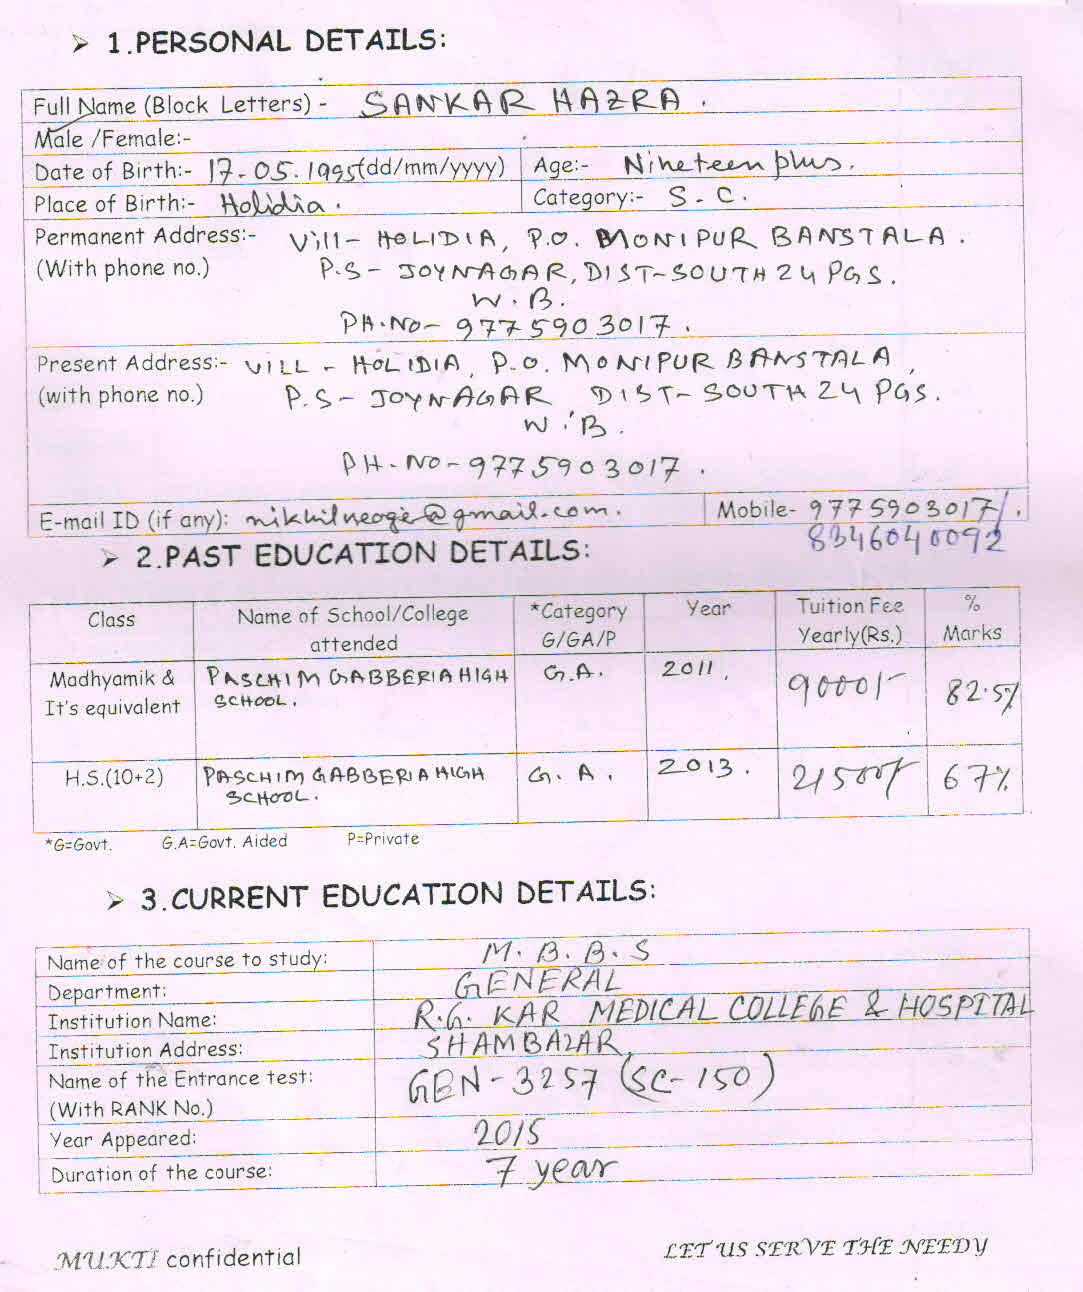 ➢ 1.PERSONAL DETAILS:
Full Name (Block Letters) - SANKAR HAZRA.
Male /Female:-
Date of Birth:- 17-05.1995 (dd/mm/yyyy) Age:- Nineteen plus.
Place of Birth:- Holidia. Category:- S-C.
Permanent Address:- Vill- HOLIDIA, P.O. MONIPUR BANSTALA.
(With phone no.) P.S- JOYNAGAR, DIST-SOUTH 24 PGS.
W.B.
PH.NO- 9775903017.
Present Address:- VILL - HOLIDIA, P.O. MONIPUR BANSTALA,
(with phone no.) P.S- JOYNAGAR DIST- SOUTH 24 PGS.
W.B.
PH.NO-9775903017.
E-mail ID (if any): nikhilneogi@gmail.com. Mobile- 9775903017/.
8346040092
➢ 2.PAST EDUCATION DETAILS:
Class Name of School/College *Category Year Tuition Fee %
attended G/GA/P Yearly(Rs.) Marks
Madhyamik & PASCHIM GABBERIA HIGH G.A. 2011. 9000/- 82.5%
It's equivalent SCHOOL.
H.S.(10+2) PASCHIM GABBERIA HIGH G.A. 2013. 21500/- 67%
SCHOOL.
*G=Govt. G.A=Govt. Aided P=Private
➢ 3.CURRENT EDUCATION DETAILS:
Name of the course to study: M.B.B.S
Department: GENERAL
Institution Name: R.G. KAR MEDICAL COLLEGE & HOSPITAL
Institution Address: SHAMBAZAR
Name of the Entrance test: GEN-3257 (SC-150)
(With RANK No.)
Year Appeared: 2015
Duration of the course: 7 year
MUKTI confidential LET US SERVE THE NEEDY